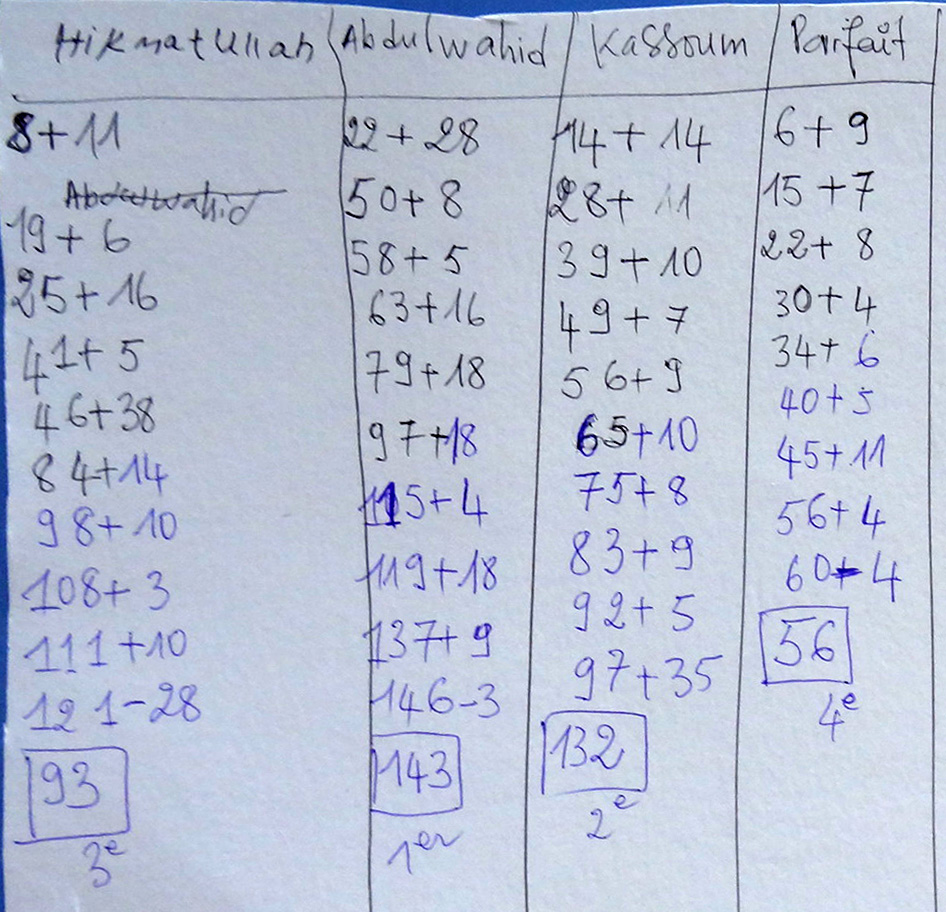 Hikmatullah Abdulwahid Kassoum Parfait
8+11 22+28 14+14 6+9
Abdulwahid 50+8 28+11 15+7
19+6 58+5 39+10 22+8
25+16 63+16 49+7 30+4
41+5 79+18 56+9 34+6
46+38 97+18 65+10 40+5
84+14 115+4 75+8 45+11
98+10 119+18 83+9 56+4
108+3 137+9 92+5 60-4
111+10 146-3 97+35 56
121-28 143 132 4e
93 1er 2e
3e